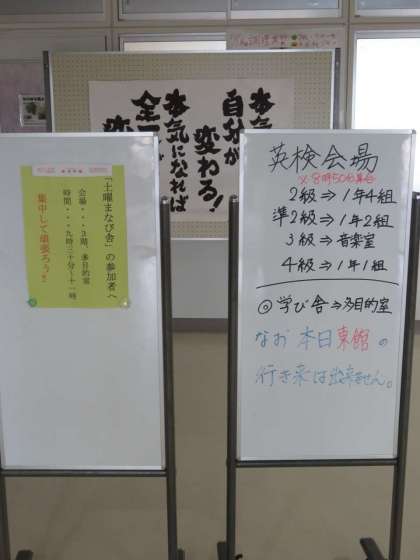 本気
自分が
変わる!
本気になれば
全
変
「土曜まなび舎」の参加者へ
会場・・・3階、多目的室
時間・・・九時三十分～十一時
集中して頑張ろう!!
英検会場
※8時50分集合
2級⇒1年4組
準2級⇒1年2組
3級⇒音楽室
4級⇒1年1組
◎学び舎⇒多目的室
なお本日東館の
行き来は出来ません。